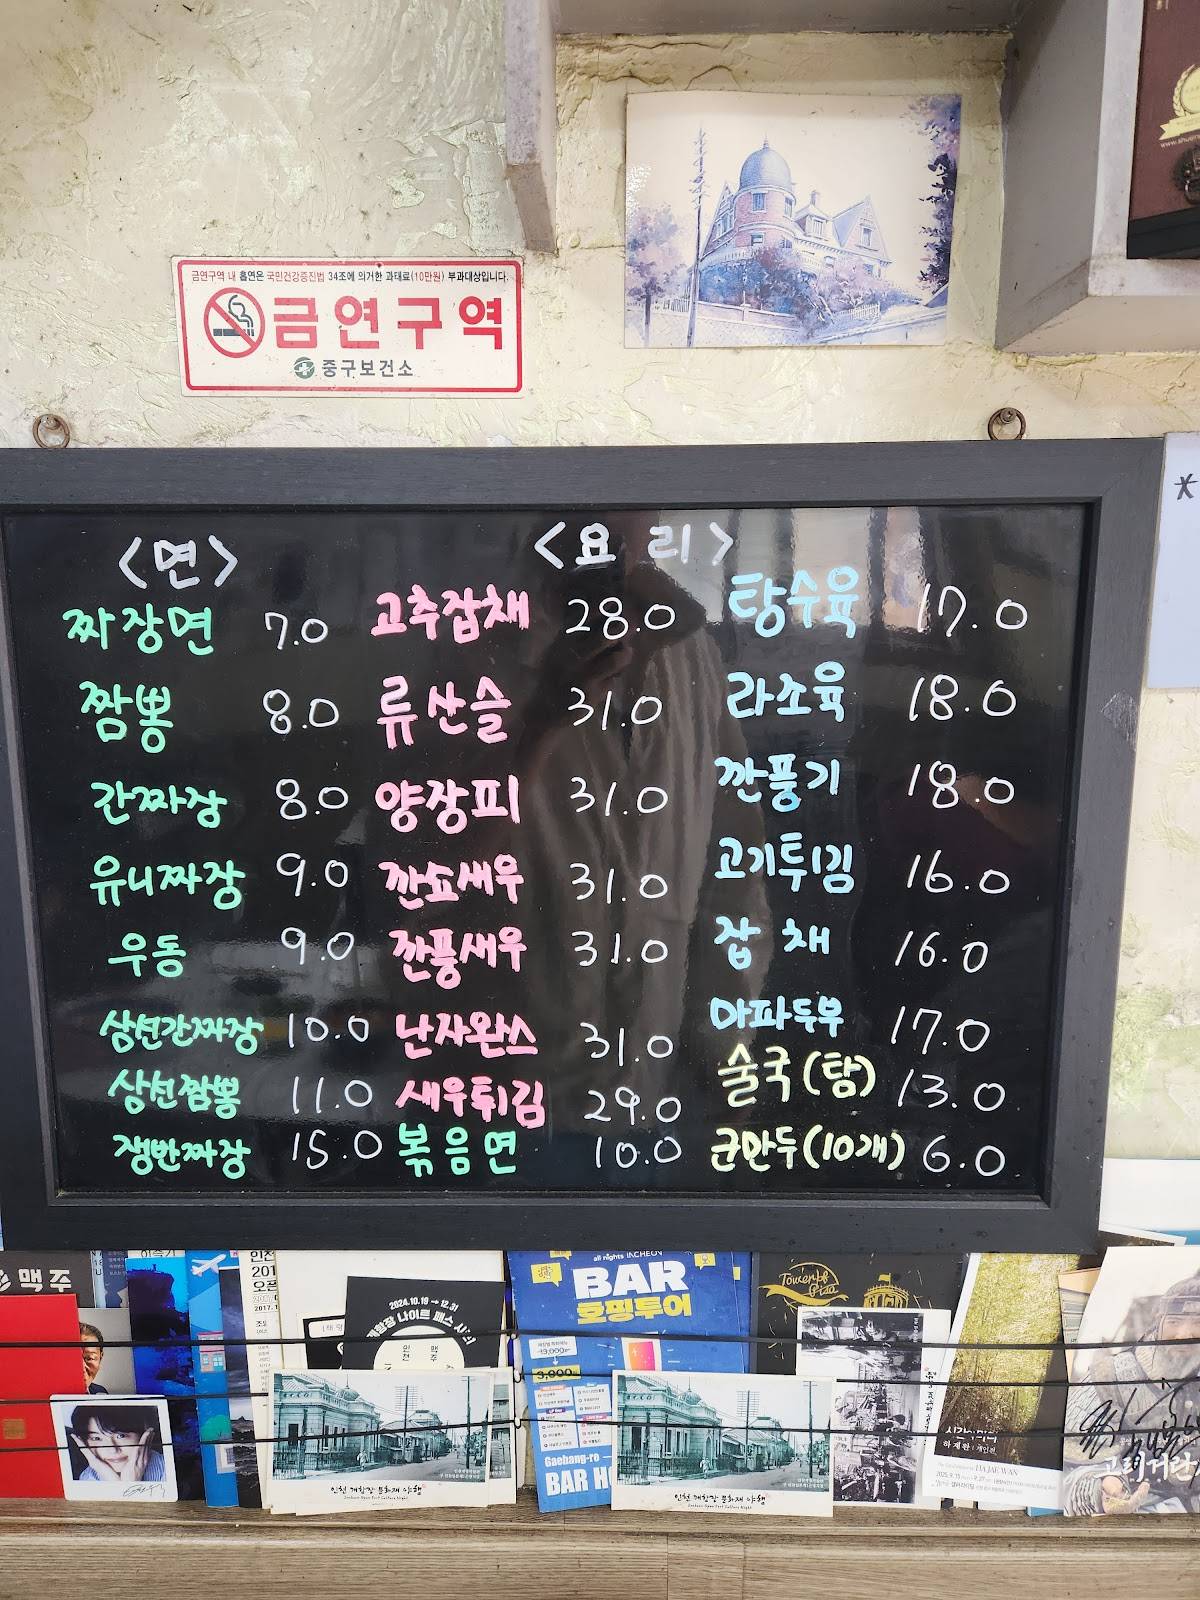 금연구역 내 흡연은 국민건강증진법 34조에 의거한 과태료(10만원) 부과대상입니다.
금연구역
중구보건소
*
<면>
짜장면 7.0
짬뽕 8.0
간짜장 8.0
유니짜장 9.0
우동 9.0
삼선간짜장 10.0
삼선짬뽕 11.0
쟁반짜장 15.0
<요리>
고추잡채 28.0
류산슬 31.0
양장피 31.0
깐쇼새우 31.0
깐풍새우 31.0
난자완스 31.0
새우튀김 29.0
볶음면 10.0
탕수육 17.0
라조육 18.0
깐풍기 18.0
고기튀김 16.0
잡채 16.0
마파두부 17.0
술국(탕) 13.0
군만두(10개) 6.0
맥주
인천
2024.10.19 → 12.31
인천 맥주
all nights INCHEON
BAR
호핑투어
13,000
3,900
Gaehang-ro
인천 개항장 문화재 야행
인천 개항장 문화재 야행
하재완
HA JAE WAN
고려거란